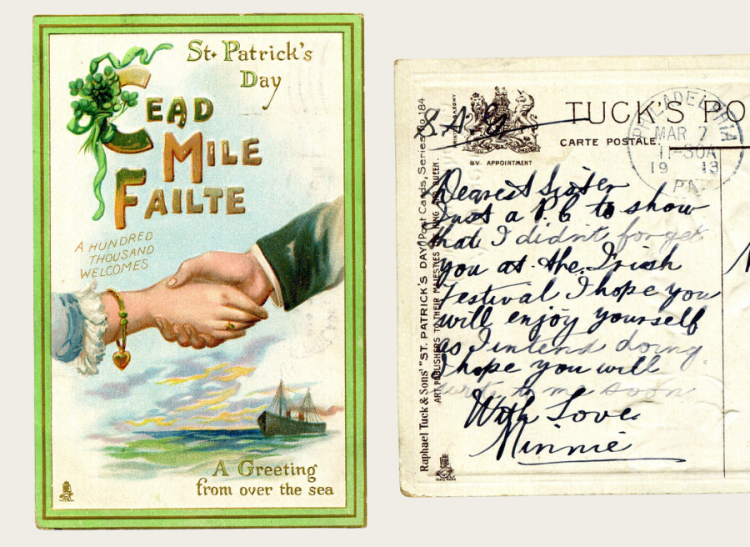 St. Patrick's
Day
CEAD
MILE
FAILTE
A HUNDRED
THOUSAND
WELCOMES
A Greeting
from over the sea
TUCK'S PO
CARTE POSTALE.
BY APPOINTMENT
PHILADELPHIA
MAR 7
11-30A
19 13
PA.
Dearest Sister
Just a P.C to show
that I didn't forget
you at the Irish
Festival I hope you
will enjoy yourself
as I intend doing.
I hope you will
to me soon
With Love
Minnie
Raphael Tuck & Sons' "ST. PATRICK'S DAY" Post Cards, Series No. 184
ART PUBLISHERS TO THEIR MAJESTIES THE KING AND QUEEN.